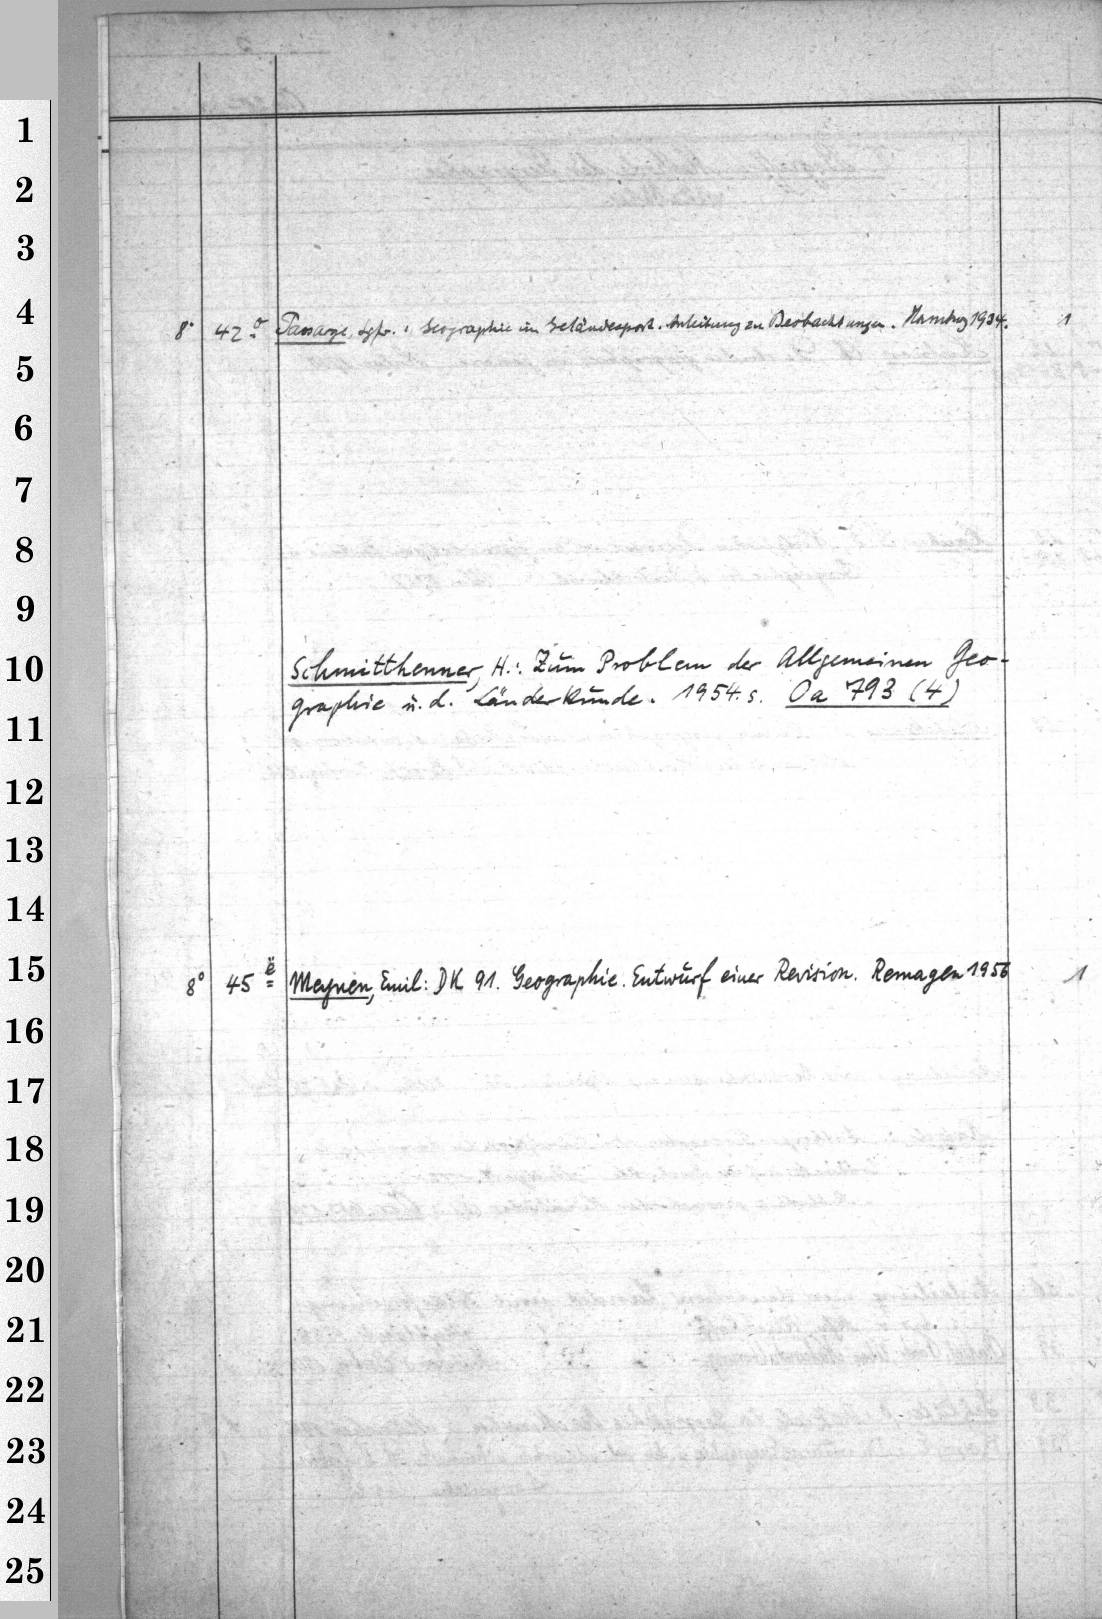 1
2
3
4
8° 42 o Passarge, Sgfr.: Geographie im Geländesport. Anleitung zu Beobachtungen. Hamburg 1934. 1
5
6
7
8
9
10
Schmitthenner, H.: Zum Problem der Allgemeinen Geo-
graphie u. d. Länderkunde. 1954. s. Oa 793 (4)
11
12
13
14
15
8° 45 ë Meynen, Emil: DK 91. Geographie. Entwurf einer Revision. Remagen 1956 1
16
17
18
19
20
21
22
23
24
25